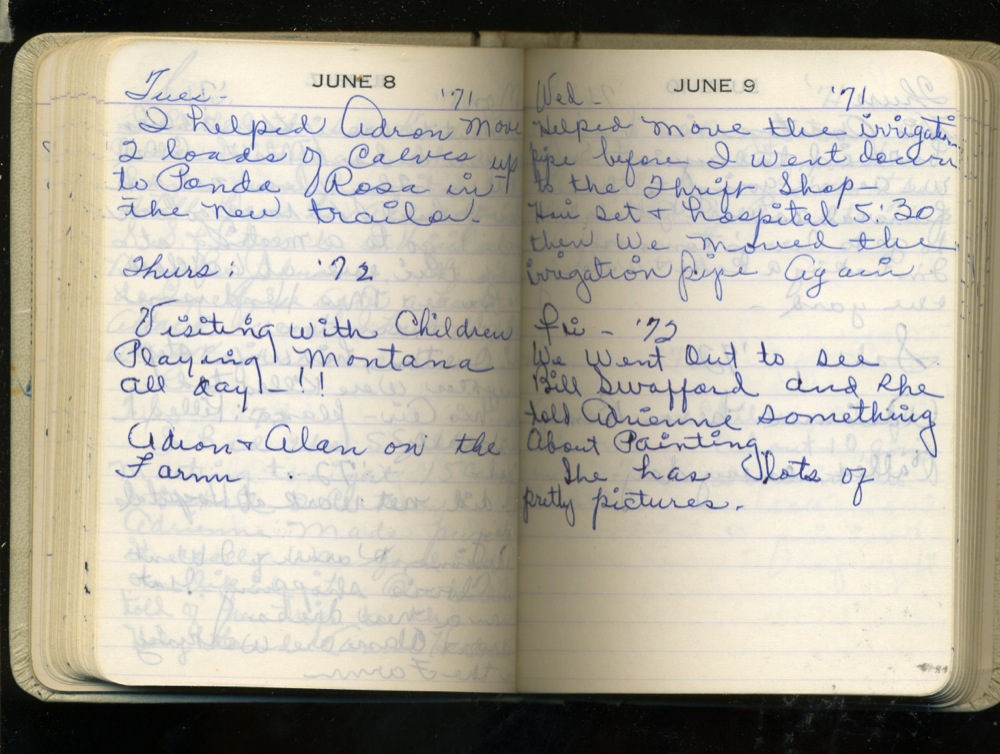 JUNE 8
Tues - '71
I helped Adron move
2 loads of Calves up
to Ponda Rosa in
the new trailer.
Thurs: '72
Visiting with Children
Playing Montana
all day -!!
Adron & Alan on the
Farm.
JUNE 9
Wed - '71
Helped move the irrigation
pipe before I went down
to the Thrift Shop -
Hair set & hospital 5:30
then We moved the
irrigation pipe Again
Fri - '72
We Went Out to see
Bill Swafford and She
told Adrienne something
About Painting.
She has lots of
pretty pictures.